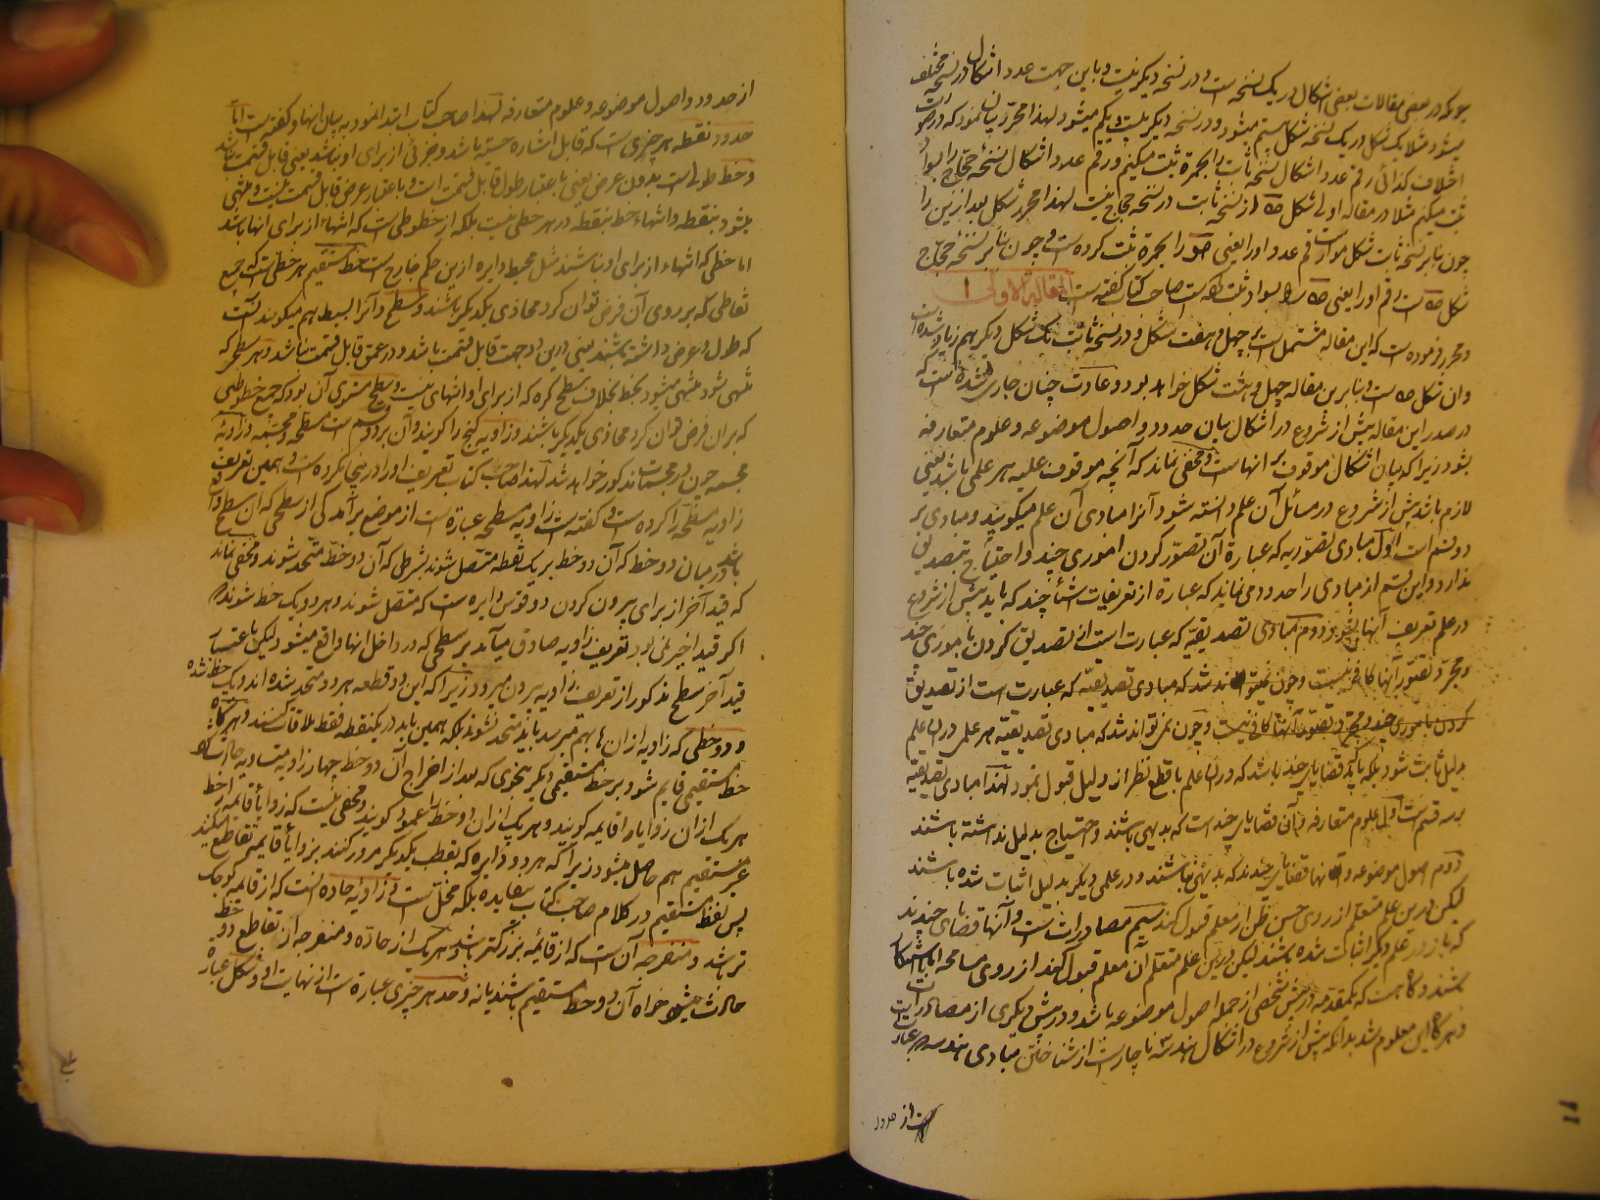 چونکه در بعضی مقالات بعضی اشکال در یک نسخه است و در نسخه دیگر نیست و باین جهت عدد اشکال در نسخه مختلف
میشود مثلا یک شکل در یک نسخه شکل بیستم میشود و در نسخه دیگر بیست و یکم میشود لهذا محرر بیان نمود که در صورت
اختلاف کذائی رقم عدد اشکال نسخه ثابت را بحمرة ثبت میکنم و رقم عدد اشکال نسخه حجاج را بسواد
ثبت میکنم مثلا در مقاله اولی شکل مه از نسخه ثابت در نسخه حجاج نیست لهذا محرر شکل بعد ازین را
چون بنابر نسخه ثابت شکل مو است رقم عدد او را یعنی مو را بحمرة ثبت کرده است و چون بنابر نسخه حجاج
شکل مه است رقم او را یعنی مه را بسواد ثبت کرده است صاحب کتاب گفته است المقالة الاولی
و محرر فرموده است که این مقاله مشتمل است بر چهل و هفت شکل و در نسخه ثابت یک شکل دیگر هم زیاد شده است
وان شکل مه است و بنابر این مقاله چهل و هشت شکل خواهد بود و عادت چنان جاری شده است که
در صدر این مقاله پیش از شروع در اشکال بیان حدود و اصول موضوعه و علوم متعارفه
بشود زیرا که بیان اشکال موقوف بر انهاست و مخفی نماند که آنچه موقوف علیه هر علمی باشد یعنی
لازم باشد پیش از شروع در مسائل آن علم دانسته شود آنرا مبادی آن علم میگویند و مبادی بر
دو قسم است اول مبادی تصوریه که عبارة آن تصور کردن اموری چند و احتیاج بتصدیق
ندارد و این قسم از مبادی را حدود می نامند که عبارة از تعریفات اشیا چند که باید پیش از شروع
در علم تعریف آنها بشود و دوم مبادی تصدیقیه که عبارت است از تصدیق کردن بامور چند
و مجرد تصور آنها کافی نیست و چون نمیتواند شد که مبادی تصدیقیه که عبارت است از تصدیق
کردن بامور چند و مجرد تصور آنها کافی نیست و چون نمیتواند شد که مبادی تصدیقیه هر علمی در ان علم
بدلیل ثابت شود بلکه باید قضایای چند باشد که در ان علم با قطع نظر از دلیل قبول نمود لهذا مبادی تصدیقیه
بر سه قسم است اول علوم متعارفه و آن قضایای چند است که بدیهی باشند و احتیاج بدلیل نداشته باشند
دوم اصول موضوعه و انها قضایای چندند که بدیهی نباشند و در علمی دیگر بدلیل اثبات شده باشند
لیکن درین علم متعلم از روی حسن ظن از معلم قبول کند سیم مصادرات است و آنها قضایای چندند
که باز در علم دیگر اثبات شده باشند لیکن درین علم متعلم آن معلم قبول کند از روی مسامحه اما با استنکار
باشند و گاه هست که یکمقدمه در پیش شخصی از جمله اصول موضوعه باشد و در پیش دیگری از مصادرات است
و هرگاه این معلوم شد بدانکه پیش از شروع در اشکال هندسه ناچار است از شناختن مبادی هندسه و عبارت
است از حدود
از حدود و اصول موضوعه و علوم متعارفه لهذا صاحب کتاب ابتدا نمود به بیان انها و گفته است اما
حدود نقطه هر چیزی است که قابل اشاره حسیه باشد و جزئی از برای او نباشد یعنی قابل قسمت نباشد
و خط طولی است بدون عرض یعنی باعتبار طول قابل قسمت است و باعتبار عرض قابل قسمت نیست و منتهی
بشود بنقطه و انتهاء خط بنقطه در هر خطی نیست بلکه از خطوطی است که انتهاء از برای آنها باشد
اما خطی که انتهاء از برای او نباشد مثل محیط دایره ازین حکم خارج است خط مستقیم هر خطی است که جمیع
نقاطی که بر روی آن فرض توان کرد محاذی یکدیگر باشند و سطح و آنرا البسیط هم میگویند آنست
که طول و عرض داشته باشد یعنی درین دو جهت قابل قسمت باشد و در عمق قابل قسمت نباشد و هر سطحی که
منتهی شود منتهی میشود بخط بخلاف سطح کره که از برای او انتهای نیست و سطح مستوی آن بود که جمیع خطوطی
که بران فرض توان کرد محاذی یکدیگر باشند و زاویه کنج را گویند و آن بر دو قسم است مسطحه و مجسمه و زاویه
مجسمه چون در مجسمات مذکور خواهد شد لهذا صاحب کتاب تعریف او را در اینجا نکرده است و همین تعریف
زاویه مسطحه را کرده است و گفته است زاویه مسطحه عبارة است از موضع برآمدگی از سطحی که ان سطح واقع
باشد در میان دو خط که آن دو خط بر یک نقطه متصل شوند بشرطی که آن دو خط متحد شوند و مخفی نماند
که قید آخر از برای بیرون کردن دو قوس دایره است که متصل شوند و هر دو یک خط شوند
اگر قید اخیر نمی بود تعریف زاویه صادق میآمد بر سطحی که در داخل انها واقع میشود لیکن باعتبار
قید آخر سطح مذکور از تعریف زاویه بیرون میرود زیرا که این دو قطعه هر دو متحد شده اند و یک خط شده
و دو خطی که زاویه از ان بهم میرسد باید متحد نشوند بلکه همین باید در یکنقطه فقط ملاقات کنند و هرگاه
خط مستقیمی قایم شود بر خط مستقیمی دیگر بنحوی که بعد از اخراج آن دو خط چهار زاویه متساویه حادث شود
هر یک ازان زوایا را قایمه گویند و هر یک ازان دو خط را عمود گویند و مخفی نیست که زوایا قایمه از خط
غیر مستقیم هم حاصل میشود زیرا که هر دو دایره که بقطب یکدیگر مرور کنند بزوایا قایمه تقاطع میکنند
پس لفظ مستقیم در کلام صاحب کتاب بیفایده بلکه مخل است و زاویه حاده آنست که از قایمه کوچک
تر باشد و منفرجه آن است که از قائمه بزرگتر باشد و هر یک از حاده و منفرجه از تقاطع دو خط
حادث میشود خواه آن دو خط مستقیم باشند یا نه و حد هر چیزی عبارة است از نهایت او و شکل عبارة